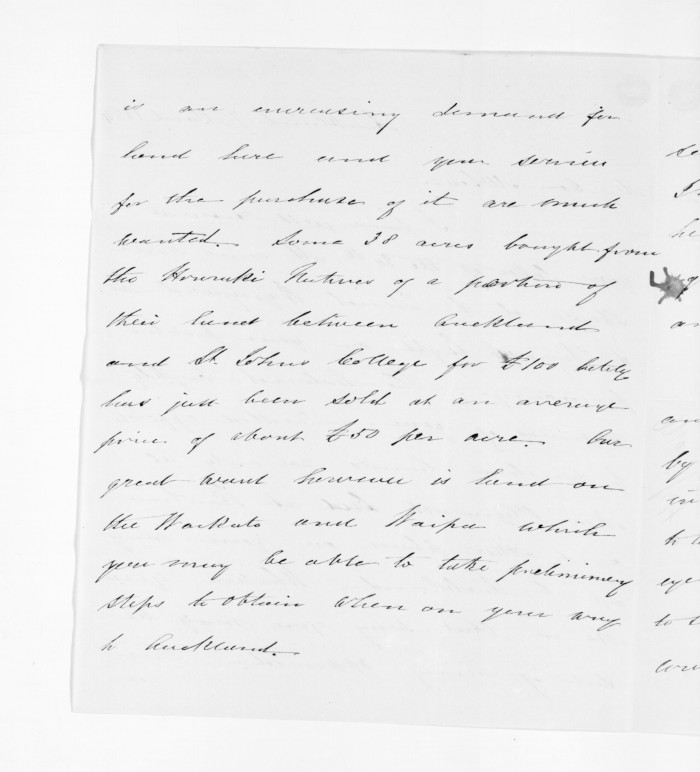 is an encreasing demand for
land here and your services
for the purchase of it are much
wanted. Some 38 acres bought from
the Houraki Natives of a portion of
their land between Auckland
and St. Johns College for £100 lately
has just been sold at an average
price of about £50 per acre. Our
great want however is land on
the Waikato and Waipa which
you may be able to take preliminary
steps to obtain when on your way
to Auckland.
by
in
eye